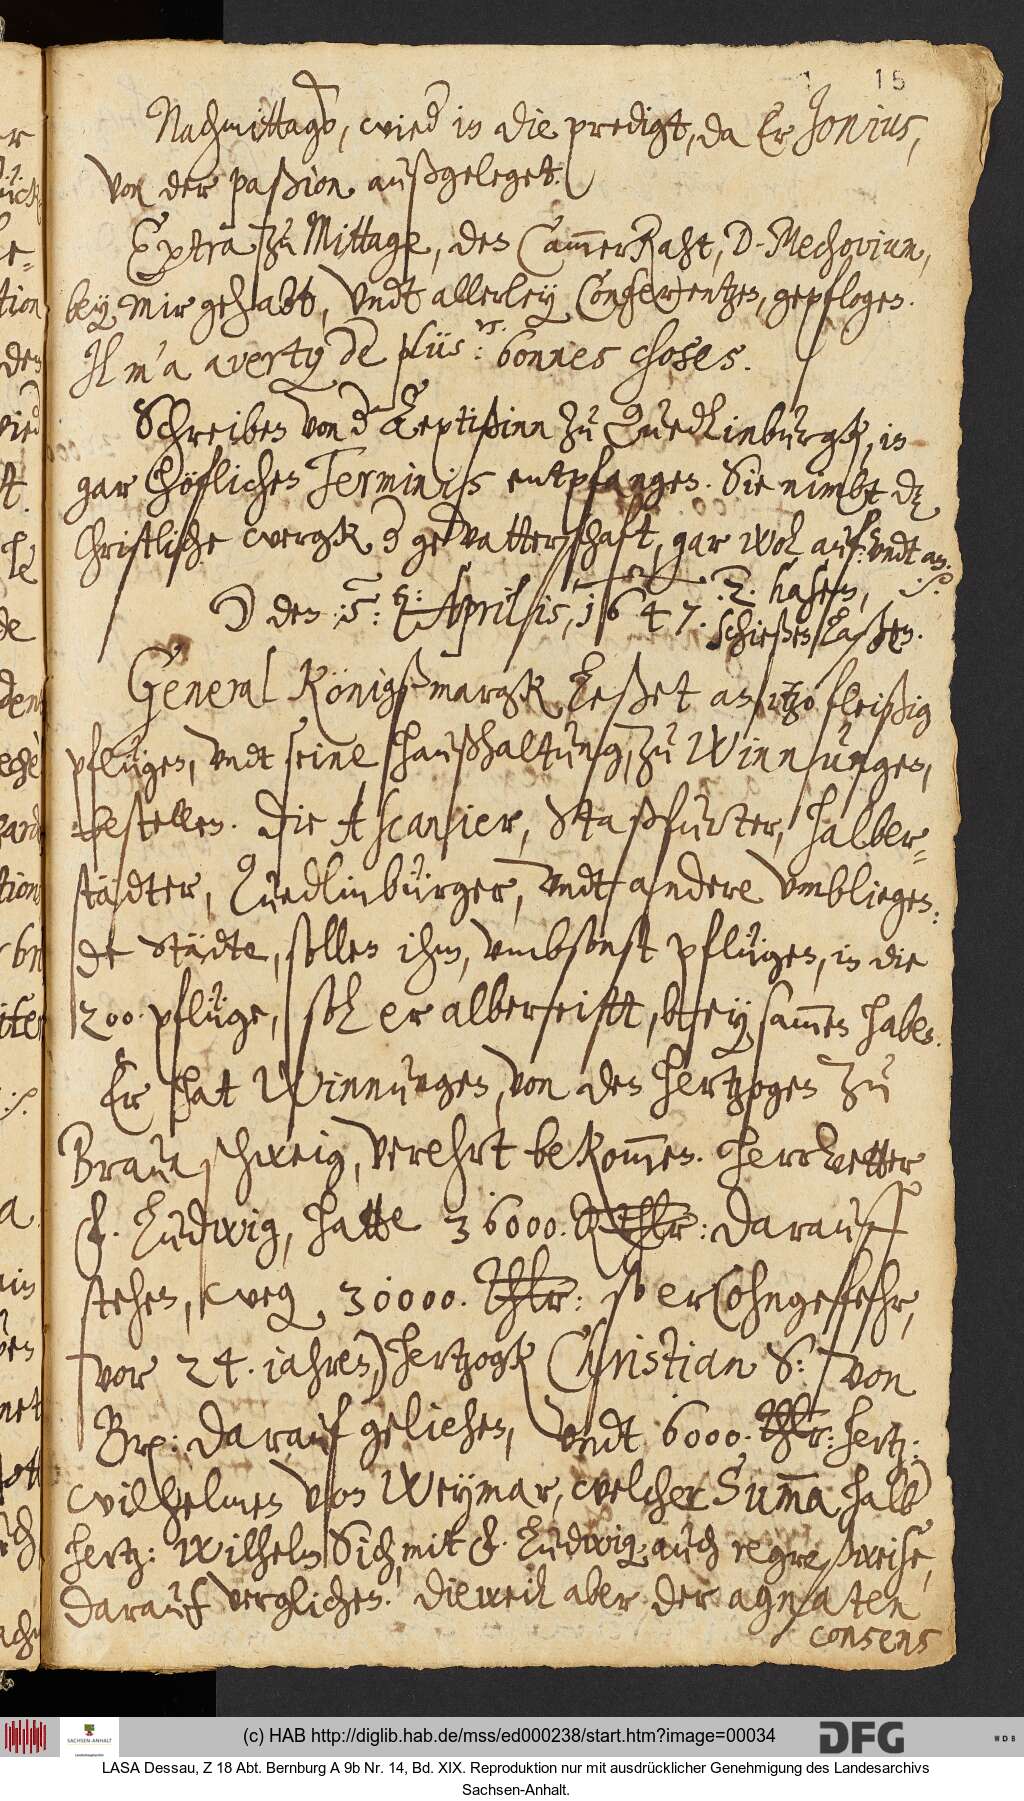 15
Nachmittags, wied in die predigt, da Er Jonius,
von der paßion außgeleget.
Extra zu Mittage, den CammerRaht, D. Mechovium,
bey mir gehabt, undt allerley Conferentzen, gepflogen.
Il m'a averty de plus: rs. bonnes choses.
Schreiben von d Aeptißinn zu Quedlinburgk, in
gar höflichen Terminis entpfangen. Sie nimbt dz
Christliche wergk d gevatterschaft, gar wol auf: undt an.
☽ den: 5: Aprilis, 1647. 2. hasen,
schießen laßen.
General Königßmargk leßet an itzo fleißig
pflügen, undt seine haußhaltung, zu Winnungen,
bestellen. Die Ascanier, Staßfurter, halber=
städter, Quedlinbürger, undt andere umbliegen:
de Städte, sollen ihm, umbsonst pflügen, in die
200. pflüge, sol er albereitt, beysammen haben.
Er hat Winnungen, von den hertzogen zu
Braunschweig, verehrt bekommen. Herrvetter
f. Ludwig, hatte 36000. Thlr: darauff
stehen, weg 30000. Thlr: so er (ohngefehr,
vor 24. jahren) hertzogk Christian S: von
Br: darauf geliehen, undt 6000. Thlr: hertz:
wilhelmen von Weymar, welcher Summa halb
hertz: Wilhelm Sich, mit f. Ludwig, auch regreßweise,
darauf verglichen. Dieweil aber der agnaten
consens
(c) HAB http://diglib.hab.de/mss/ed000238/start.htm?image=00034
DFG
WDB
SACHSEN-ANHALT
LASA Dessau, Z 18 Abt. Bernburg A 9b Nr. 14, Bd. XIX. Reproduktion nur mit ausdrücklicher Genehmigung des Landesarchivs
Sachsen-Anhalt.